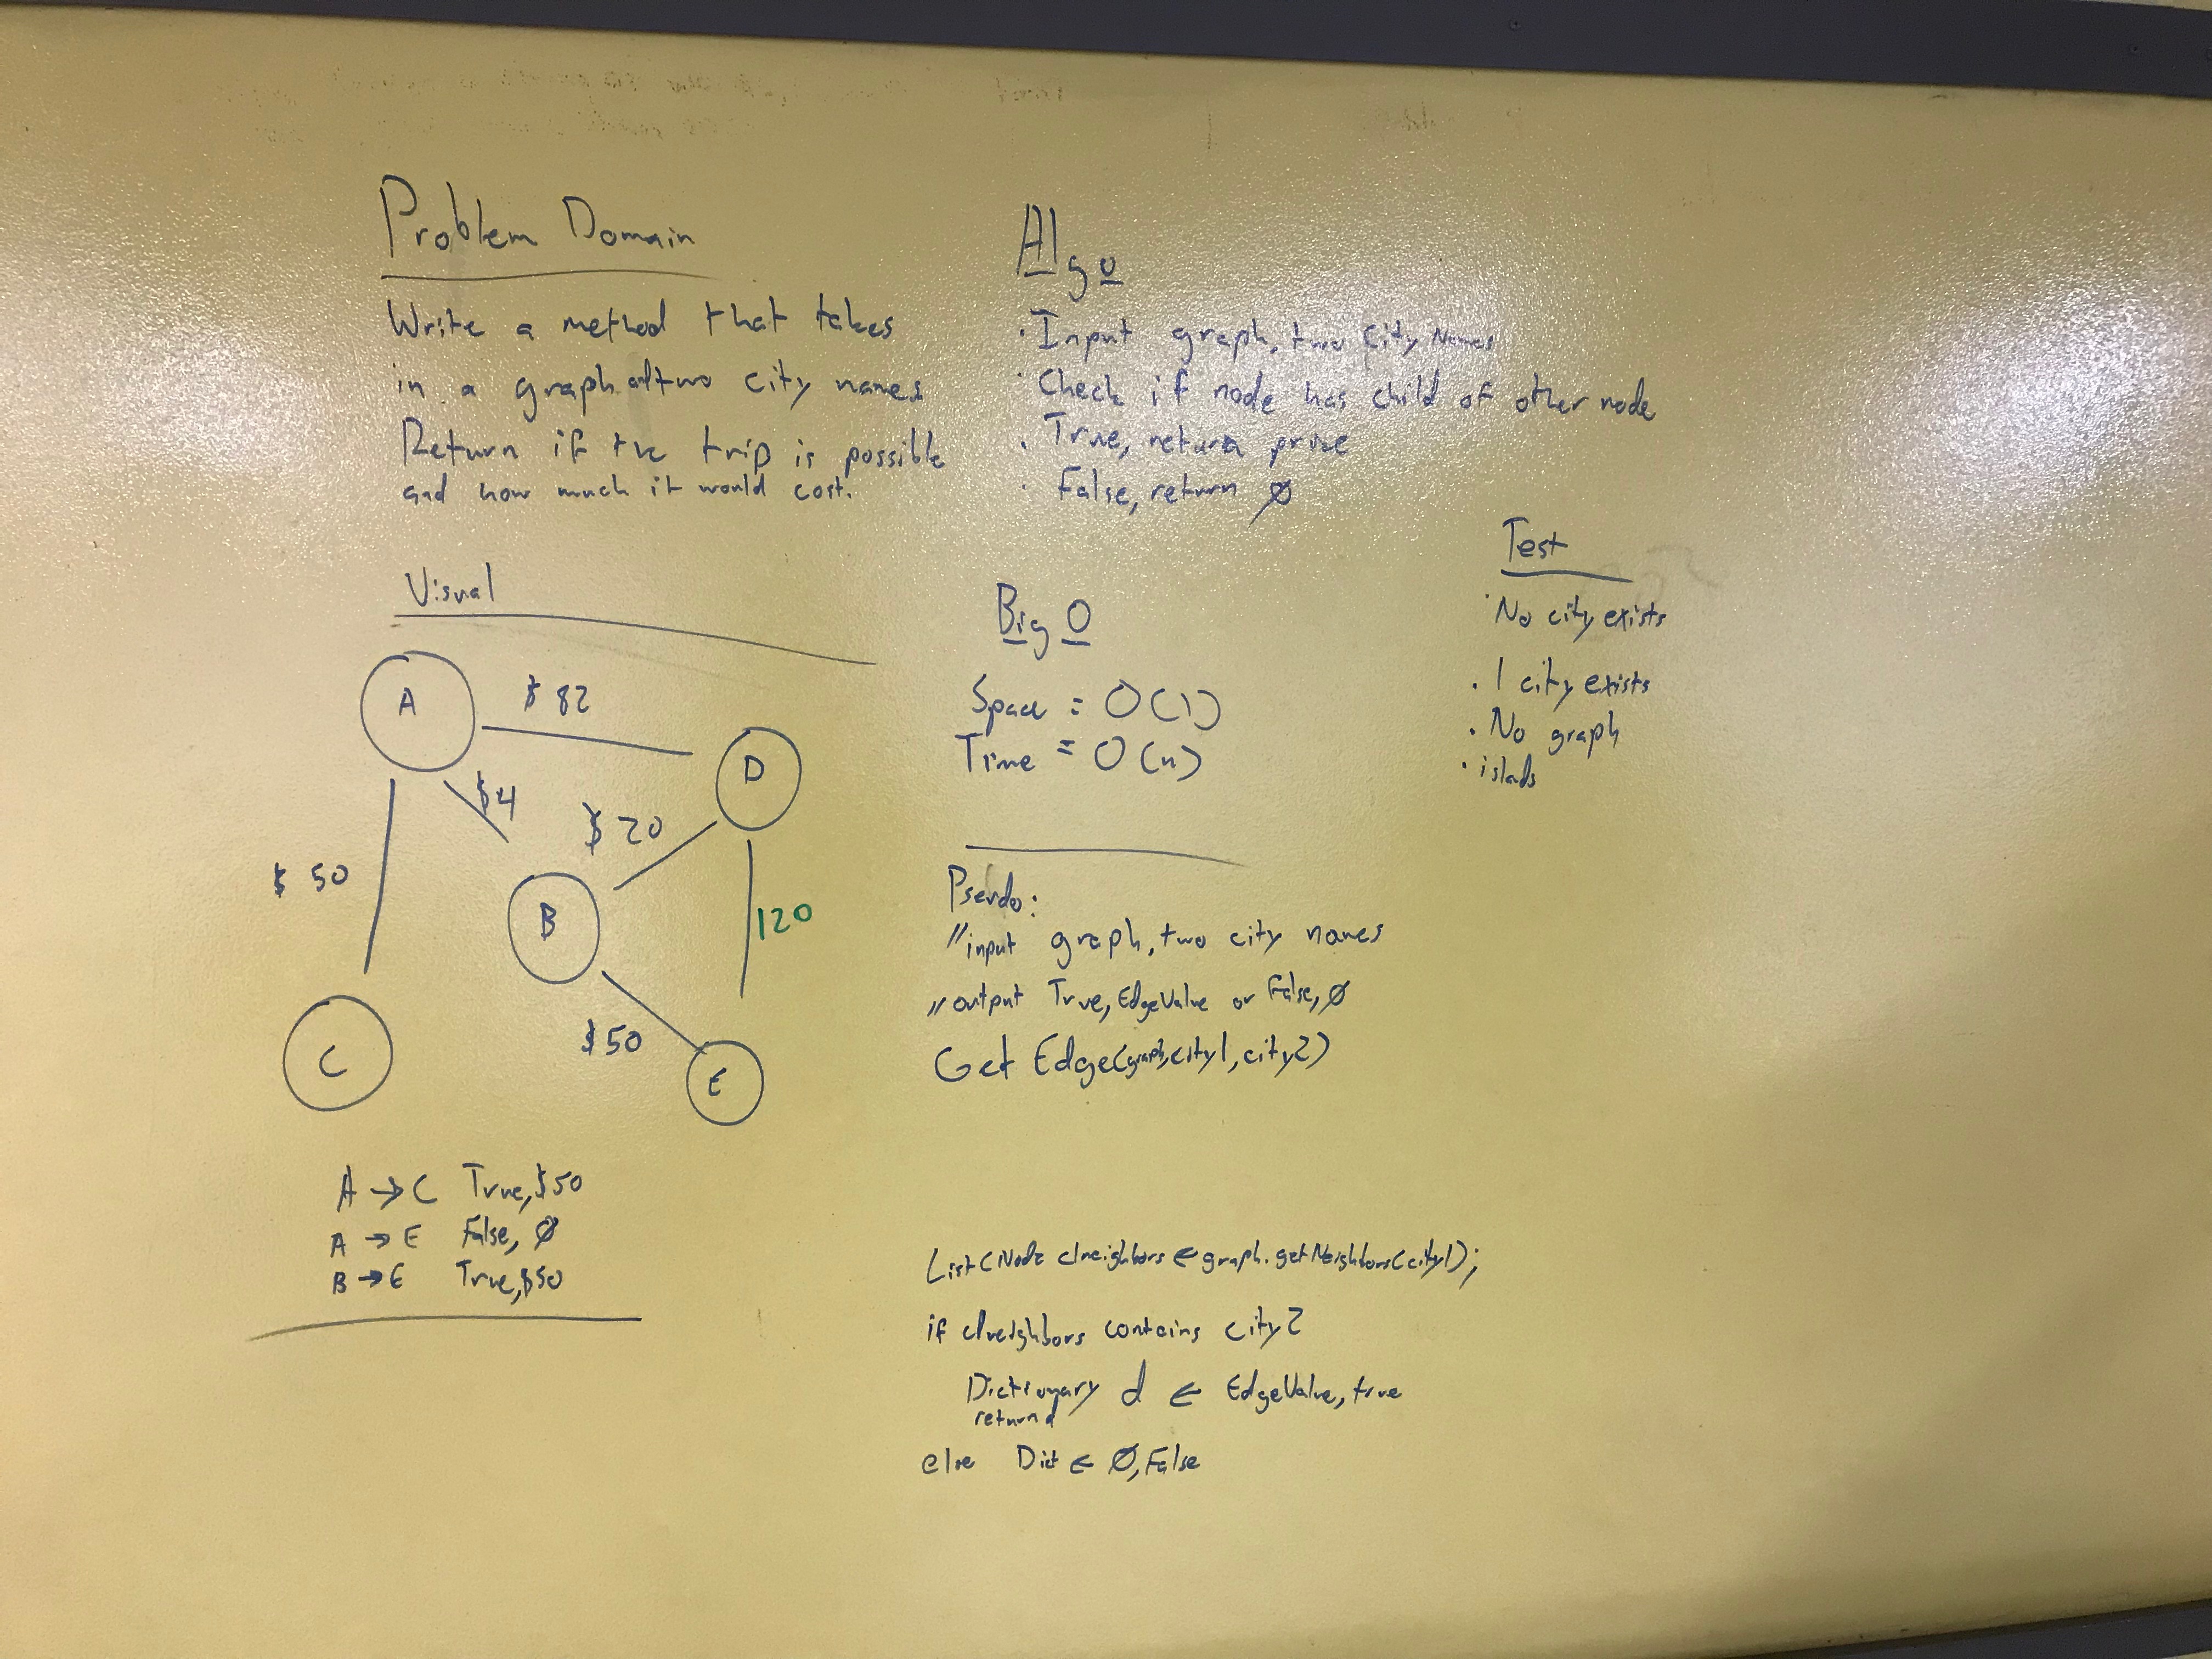 Problem Domain
Write a method that takes
in a graph and two city names
Return if the trip is possible
and how much it would cost.
Visual
A
$ 82
D
$4
$ 20
$ 50
B
120
$50
C
E
A → C True, $50
A → E False, Ø
B → E True, $50
Algo
· Input graph, two City Names
· Check if node has child of other node
· True, return price
· False, return Ø
Big O
Space = O(1)
Time = O(n)
Pseudo:
// input graph, two city names
// output True, EdgeValue or False, Ø
Get Edge(graph, city1, city2)
List(Node c1neighbors ← graph.getNeighbors(city1);
if c1neighbors contains city2
Dictionary d ← EdgeValue, true
return d
else Dict ← Ø, False
Test
· No city exists
· 1 city exists
· No graph
· islads